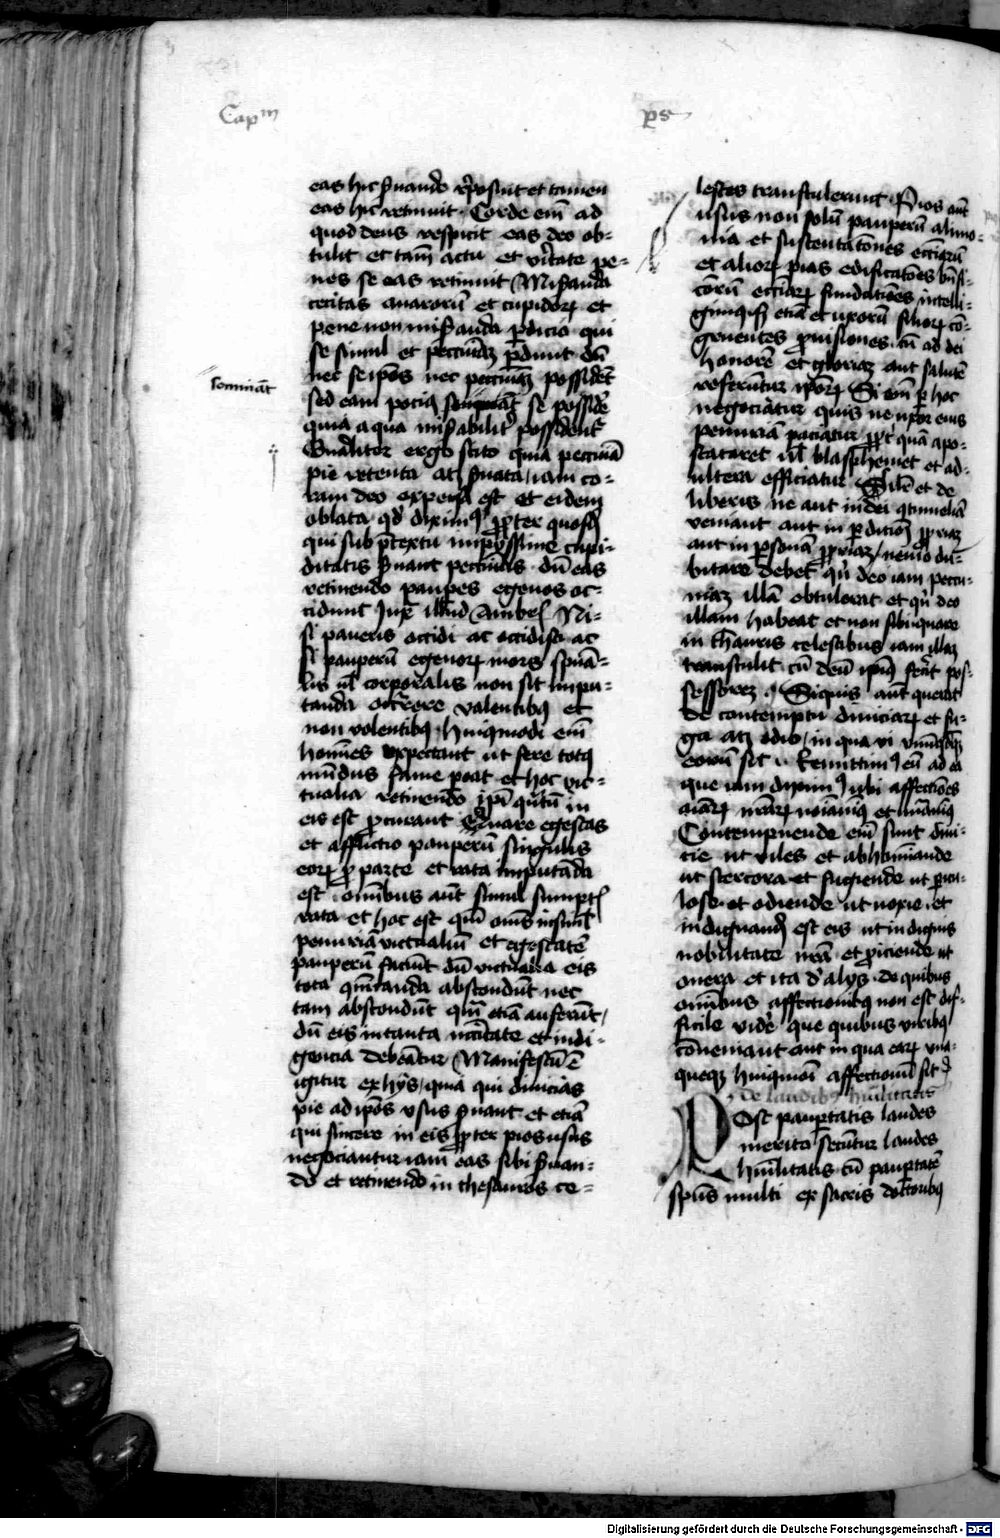 Capm
ps
eas hic suando reposuit et tamen
eas hic retinuit. Corde em ad
quod deus respicit eas deo ob=
tulit et tam actu et vitate pe=
nes se eas retinuit Misanda
cecitas auarorū et cupidor et
pene non misanda pdicio qui
se simul et pecunia pdunt dū
nec seipos nec pecunia possidēt
sominiāt
sed eam pocius se possidē
quia a qua misabilit possident
Qualiter ergo scito quia pecunia
pie retenta atq suata iam co=
ram deo expensa est et eidem
oblata qd diximus ppter quosd
qui sub ptextu impijssime cupi=
ditatis suant pecunias dū eas
retinendo paupes egenos oc=
cidunt Iux illud Ambr Ni=
si paueris occidi ac occidisti ac
si pauperū egenor mors spūa=
lis ul corporalis non sit impu=
tanda occurrere valentibus et
non volentibus huiusmodi em
homēs expectant ut fere totus
mūdus fame peat et hoc vic=
tualia retinendo ipi qtum in
eis est pcurant Quare egestas
et afflictio pauperū singulis
eor p parte et rata imputāda
est omībus aut simul sumpt
rata et hoc est qm oms insimul
penuriā victualiū et egestatē
pauperū faciūt dū victualia eis
tota abscondūt nec
tam abscondūt qm etiā auferūt
dū eis in tanta nccitate et indi=
gencia debeātur Manifestū ē
igitur ex hijs quia qui diuicias
pie ad ipos vsus suant et etiā
qui sincere in eis ppter pios usus
negociantur iam eas sibi suan=
do et retinendo in thesauros ce=
lestes transtulerunt Pios aut
usus non solū pauperū alimo=
nia et sustentatōnes eccliarū
et alior pias edificatōes bnfi=
corū eccliar fundatiōes intelli=
gimus etiā et uxorū filior cō=
gruentes puisiones cū ad dei
honorē et gloriaz aut salutē
referuntur ipor Si em p hoc
negociatur quis ne uxor eius
penuriā paciatur ppt quā apo=
stataret ul blasphemet et ad=
ultera efficiatur Silr et de
liberis ne aut in dei
veniant aut in pditioēm ppriaz
aut in psonā ppriaz nemo du=
bitare debet qn deo iam pecu=
niaz illā obtulerat et qn deo
illam habeat et non sibi quare
in thauris celestibus iam illaz
transtulit cū deū ipius fecit pos=
sessorez Siquis aut querat
de contemptu diuiciar et fu=
ga atq odio in qua vi
eorū sit Remittimus eū ad ea
que iam diximus ubi affectiōes
aiar nrar noiauimus et
Contempnende em sunt diui=
cie ut viles et abhomiande
ut stercora et fugiende ut picu=
lose et odiende ut noxie et
indignand est eis ut indignis
nobilitate nra et piciende ut
onera et ita d alijs de quibus
omībus affectionibus non est dif=
ficile videre que quibus viribus
cōueniant aut in qua ear una=
queq huiusmoi affectionū sit
de laudibus huilitatis
Post paupertatis laudes
merito secūtur laudes
huilitatis cū paupertatē
spūs multi ex sacris doctoribus
Digitalisierung gefördert durch die Deutsche Forschungsgemeinschaft - DFG